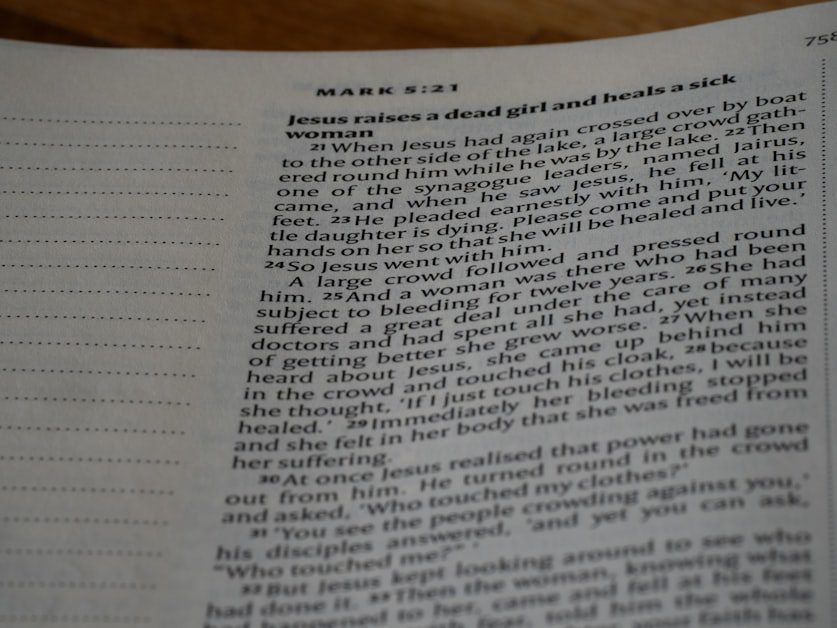 758
MARK 5:21
Jesus raises a dead girl and heals a sick
woman
21 When Jesus had again crossed over by boat
to the other side of the lake, a large crowd gath-
ered round him while he was by the lake. 22 Then
one of the synagogue leaders, named Jairus,
came, and when he saw Jesus, he fell at his
feet. 23 He pleaded earnestly with him, ‘My lit-
tle daughter is dying. Please come and put your
hands on her so that she will be healed and live.’
24 So Jesus went with him.
A large crowd followed and pressed round
him. 25 And a woman was there who had been
subject to bleeding for twelve years. 26 She had
suffered a great deal under the care of many
doctors and had spent all she had, yet instead
of getting better she grew worse. 27 When she
heard about Jesus, she came up behind him
in the crowd and touched his cloak, 28 because
she thought, ‘If I just touch his clothes, I will be
healed.’ 29 Immediately her bleeding stopped
and she felt in her body that she was freed from
her suffering.
30 At once Jesus realised that power had gone
out from him. He turned round in the crowd
and asked, ‘Who touched my clothes?’
31 ‘You see the people crowding against you,’
his disciples answered, ‘and yet you can ask,
“Who touched me?” ’
32 But Jesus kept looking around to see who
had done it. 33 Then the woman, knowing what
had happened to her, came and fell at his feet
with fear, told him the whole
your faith has